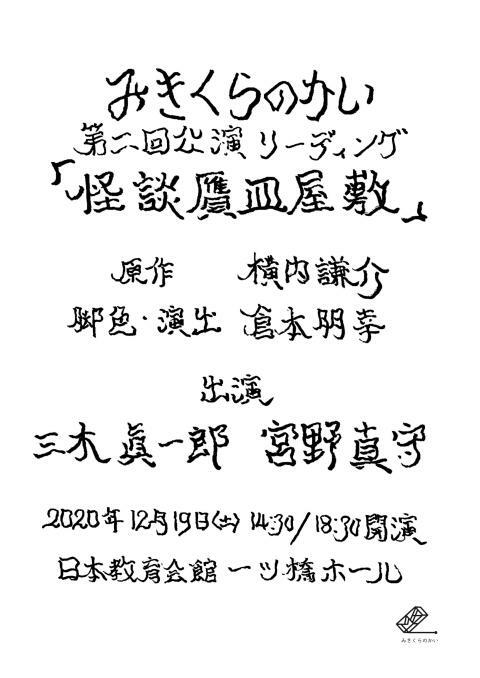 みきくらのかい
第二回公演 リーディング
「怪談贋皿屋敷」
原作 横内謙介
脚色・演出 倉本朋幸
出演
三木眞一郎 宮野真守
2020年12月19日(土) 14:30/18:30開演
日本教育会館 一ツ橋ホール
みきくらのかい